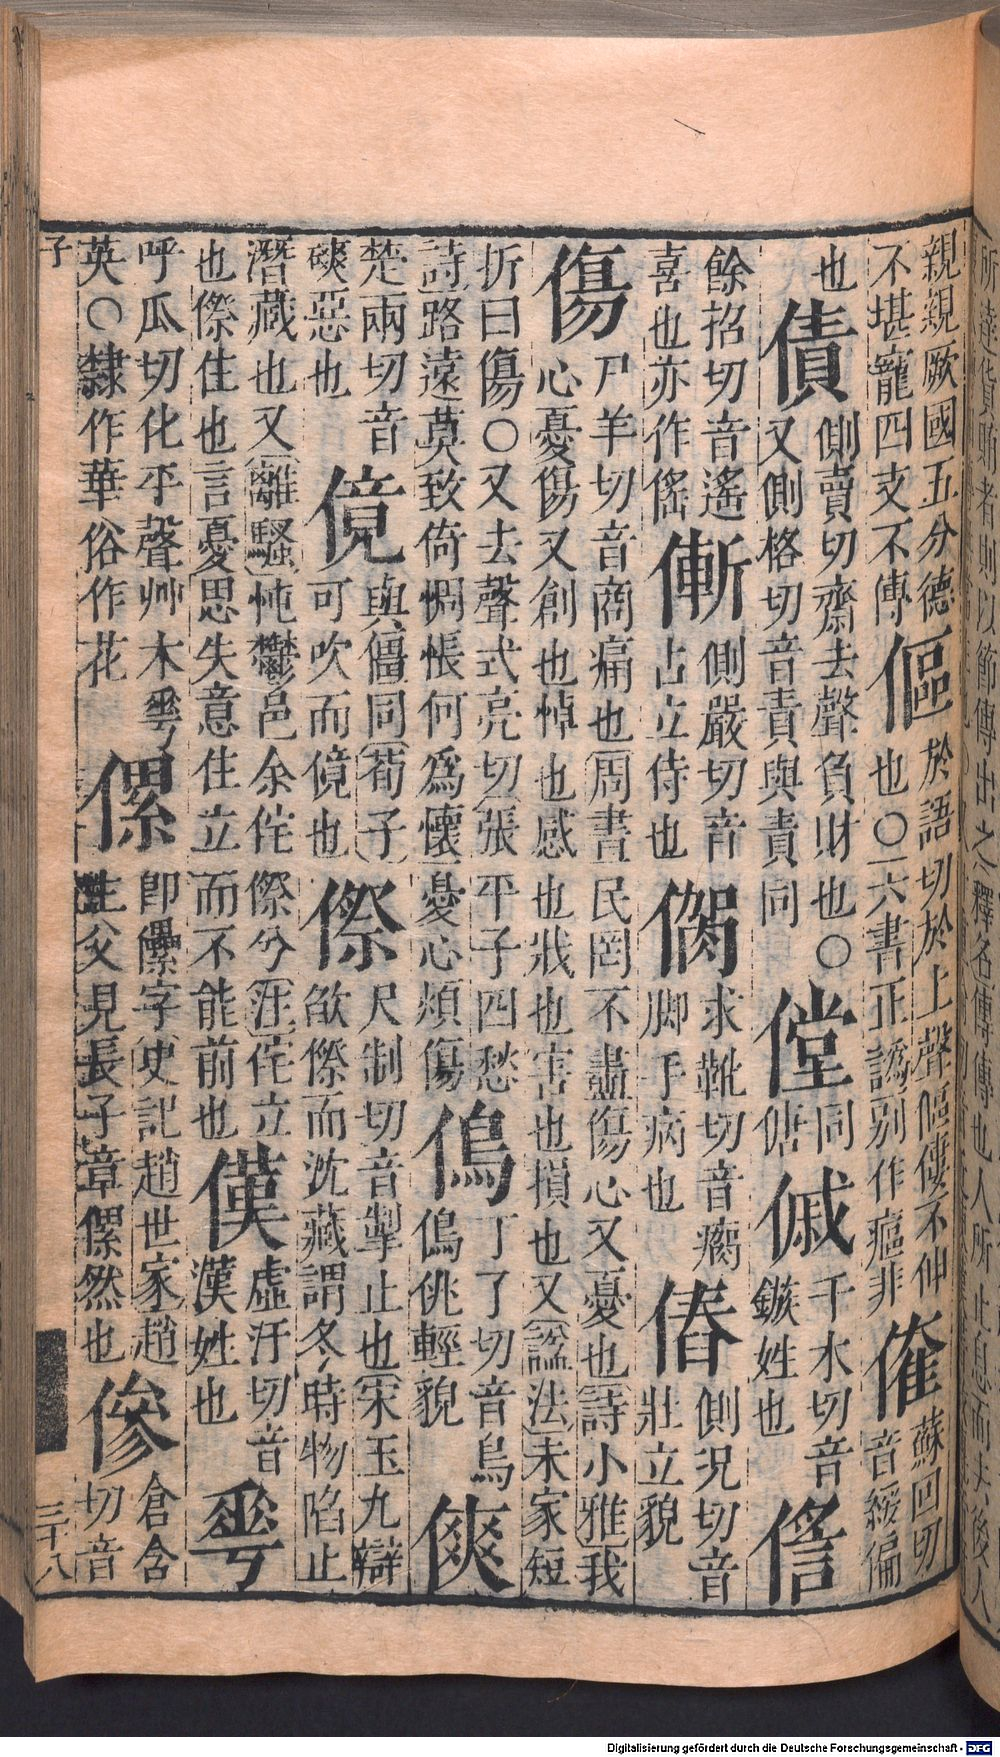 親親厥國五分德
不堪寵四支不傳
傴
於語切於上聲傴僂不伸
也○六書正譌別作非
蘇回切
音綏偏
也
債
側賣切齋去聲負財也○
又側格切音責與責同
同
傏
傶
千水切音
鏃姓也
餘招切音遙
喜也亦作傜
側嚴切音
占立侍也
求靴切音瘸
脚手病也
側況切音
壯立貌
傷
尸羊切音商痛也周書民罔不盡傷心又憂也詩小雅我
心憂傷又創也悼也感也戕也害也損也又諡法未家短
折曰傷○又去聲式亮切張平子四愁
詩路遠莫致倚惆悵何為懷憂心煩傷
丁了切音鳥
佻輕貌
傸
楚兩切音
磢惡也
傹
與僵同荀子
可吹而傹也
傺
尺制切音掣止也宋玉九辯
欿傺而沈藏謂冬時物陷止
潛藏也又離騷忳鬱邑余侘傺兮注侘立
也傺住也言憂思失意住立而不能前也
傼
虛汗切音
漢姓也
𠌶
呼瓜切化平聲艸木𠌶
英○隸作華俗作花
傫
即儽字史記趙世家趙
主父見長子章傫然也
傪
倉含
切音
子
三十八
Digitalisierung gefördert durch die Deutsche Forschungsgemeinschaft - DFG